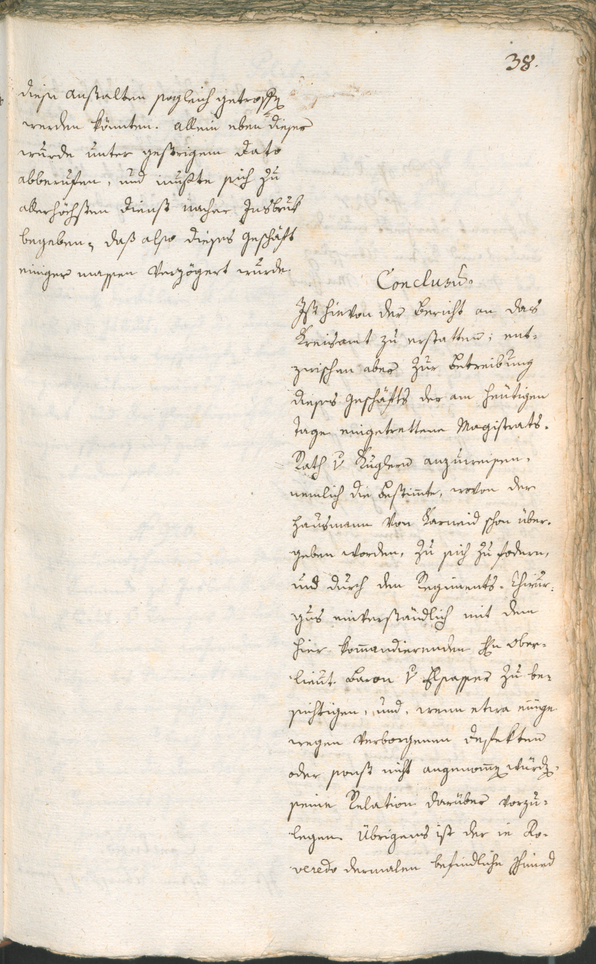 38.
diese Anstalten sogleich getroffen
werden könnten. Allein eben dieser
wurde unter gestrigem Dato
abberufen, und mußte sich zu
allerhöchsten Dienst nacher Insbruk
begeben, daß also dieses Geschäft
einiger massen verzögert wurde.
Conclusum.
Ist hievon der Bericht an das
Kreisamt zu erstatten; ent-
zwischen aber zur Betreibung
dieses Geschäfts der am heutigen
Tage eingetrettene Magistrats-
Rath v. Kuglern anzuweisen,
nemlich die Bestimmte, wovon der
Hausmann von Karneid schon über-
geben worden, zu sich zu fodern,
und durch den Regiments-Chirur-
gus einverständlich mit dem
hier kommandierenden Hn Ober-
lieut. Baron v. zu be-
sichtigen, und, wenn etwa einige
wegen verborgenen Defekten
oder sonst nicht angenommen würden,
seine Relation darüber vorzu-
legen. Übrigens ist der in Ro-
veredo dermalen befindliche Schmied